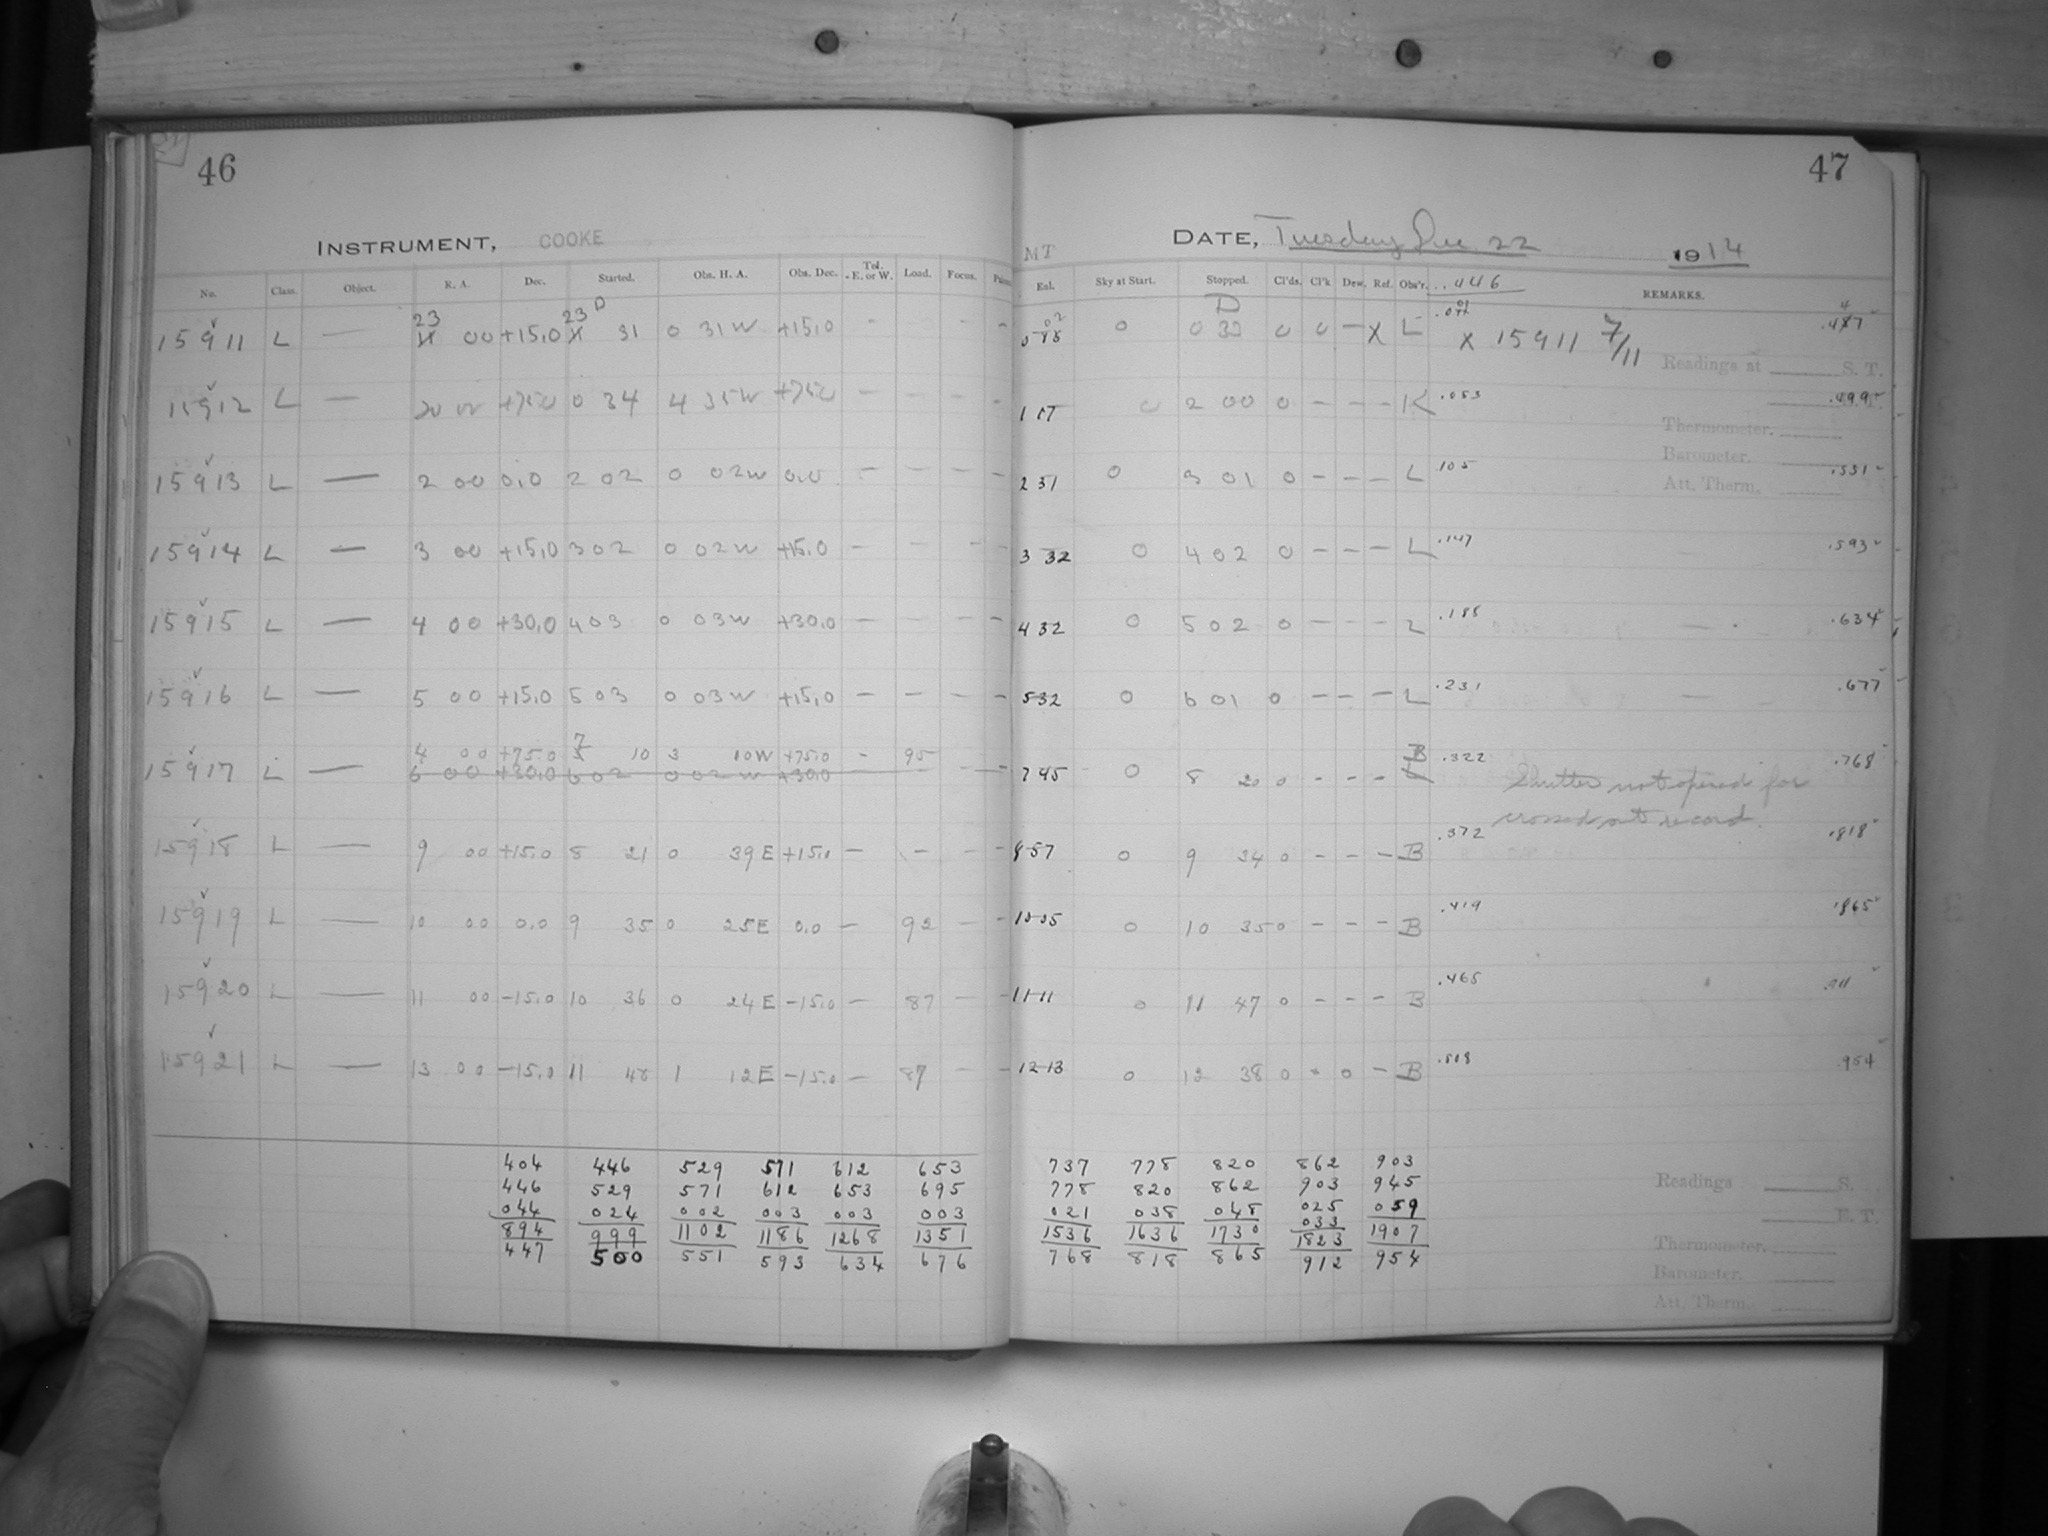 46
INSTRUMENT, COOKE
No. Class. Object. R. A. Dec. Started. Obs. H. A. Obs. Dec. Tel. E. or W. Load. Focus.
23 23 D
15911 L — 00 +15,0 31 0 31 W +15,0 -
15912 L — +75,0 0 34 4 35 W +75,0 — - - -
15913 L — 2 00 0,0 2 02 0 02 W 0,0 - - - -
15914 L — 3 00 +15,0 3 02 0 02 W +15,0 - - - -
15915 L — 4 00 +30,0 4 03 0 03 W +30,0 - - - -
15916 L — 5 00 +15,0 5 03 0 03 W +15,0 - - - -
4 00 +75.0 7 10 3 10 W +75.0 - 95
15917 L — 6 00 +30,0 6 02 0 02 W +30,0
15918 L — 9 00 +15.0 8 21 0 39 E +15.0 — - - -
15919 L — 10 00 0.0 9 35 0 25 E 0.0 — 92 - -
15920 L — 11 00 -15.0 10 36 0 24 E -15.0 — 87 - -
15921 L — 13 00 -15.0 11 48 1 12 E -15.0 — 87 - -
404 446 529 571 612 653
446 529 571 612 653 695
044 024 002 003 003 003
894 999 1102 1186 1268 1351
447 500 551 593 634 676
47
MT DATE, Tuesday Dec 22 1914
Exl. Sky at Start. Stopped. Cl'ds. Cl'k Dew. Ref. Obs'r. .446 REMARKS.
D
0 0 0 0 — X L X 15911 7/11
Readings at S. T.
1 17 0 2 00 0 - - - K .053 .499
Thermometer.
Barometer.
2 31 0 3 01 0 - - - L .105 .551
Att. Therm.
3 32 0 4 02 0 - - - L .147 .593
4 32 0 5 02 0 - - - L .188 — .634
5 32 0 6 01 0 - - - L .231 — .677
7 45 0 8 20 0 - - - B .322 .768
Shutter not opened for
crossed out record.
8 57 0 9 34 0 - - - B .372 .818
10 05 0 10 35 0 - - - B .419 .865
11 11 0 11 47 0 - - - B .465 .911
12 13 0 12 38 0 0 0 - B .508 .954
737 778 820 862 903
778 820 862 903 945
021 038 048 025 059
033
1536 1636 1730 1823 1907
768 818 865 912 954
Readings S.
E. T.
Thermometer.
Barometer.
Att. Therm.